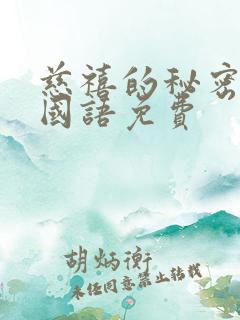 慈禧的秘密
國語免費
胡炳衡
未经同意禁止转载